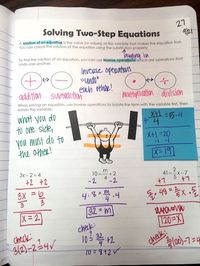 27
Solving Two-Step Equations
A solution of an equation is the value (or values) of the variable that makes the equation true.
You can check the solution of the equation using the
To find the solution of an equation, you can use inverse operations, which are operations that undo one another.
inverse operations
"undo"
each other!
addition
subtraction
multiplication
division
When solving an equation, use inverse operations to isolate the term with the variable first, then isolate the variable.
what you do
to one side,
you must do to
the other!
x+1/4 = 5
x+1=20
-1 -1
x=19
3x - 2 = 4
+2 +2
3x/3 = 6/3
x=2
check:
3(2)-2=4✓
10 = m/4 + 2
-2 -2
4·8 = m/4·4
32=m
check:
10 = 32/4 + 2
10=8+2✓
120=x
check: